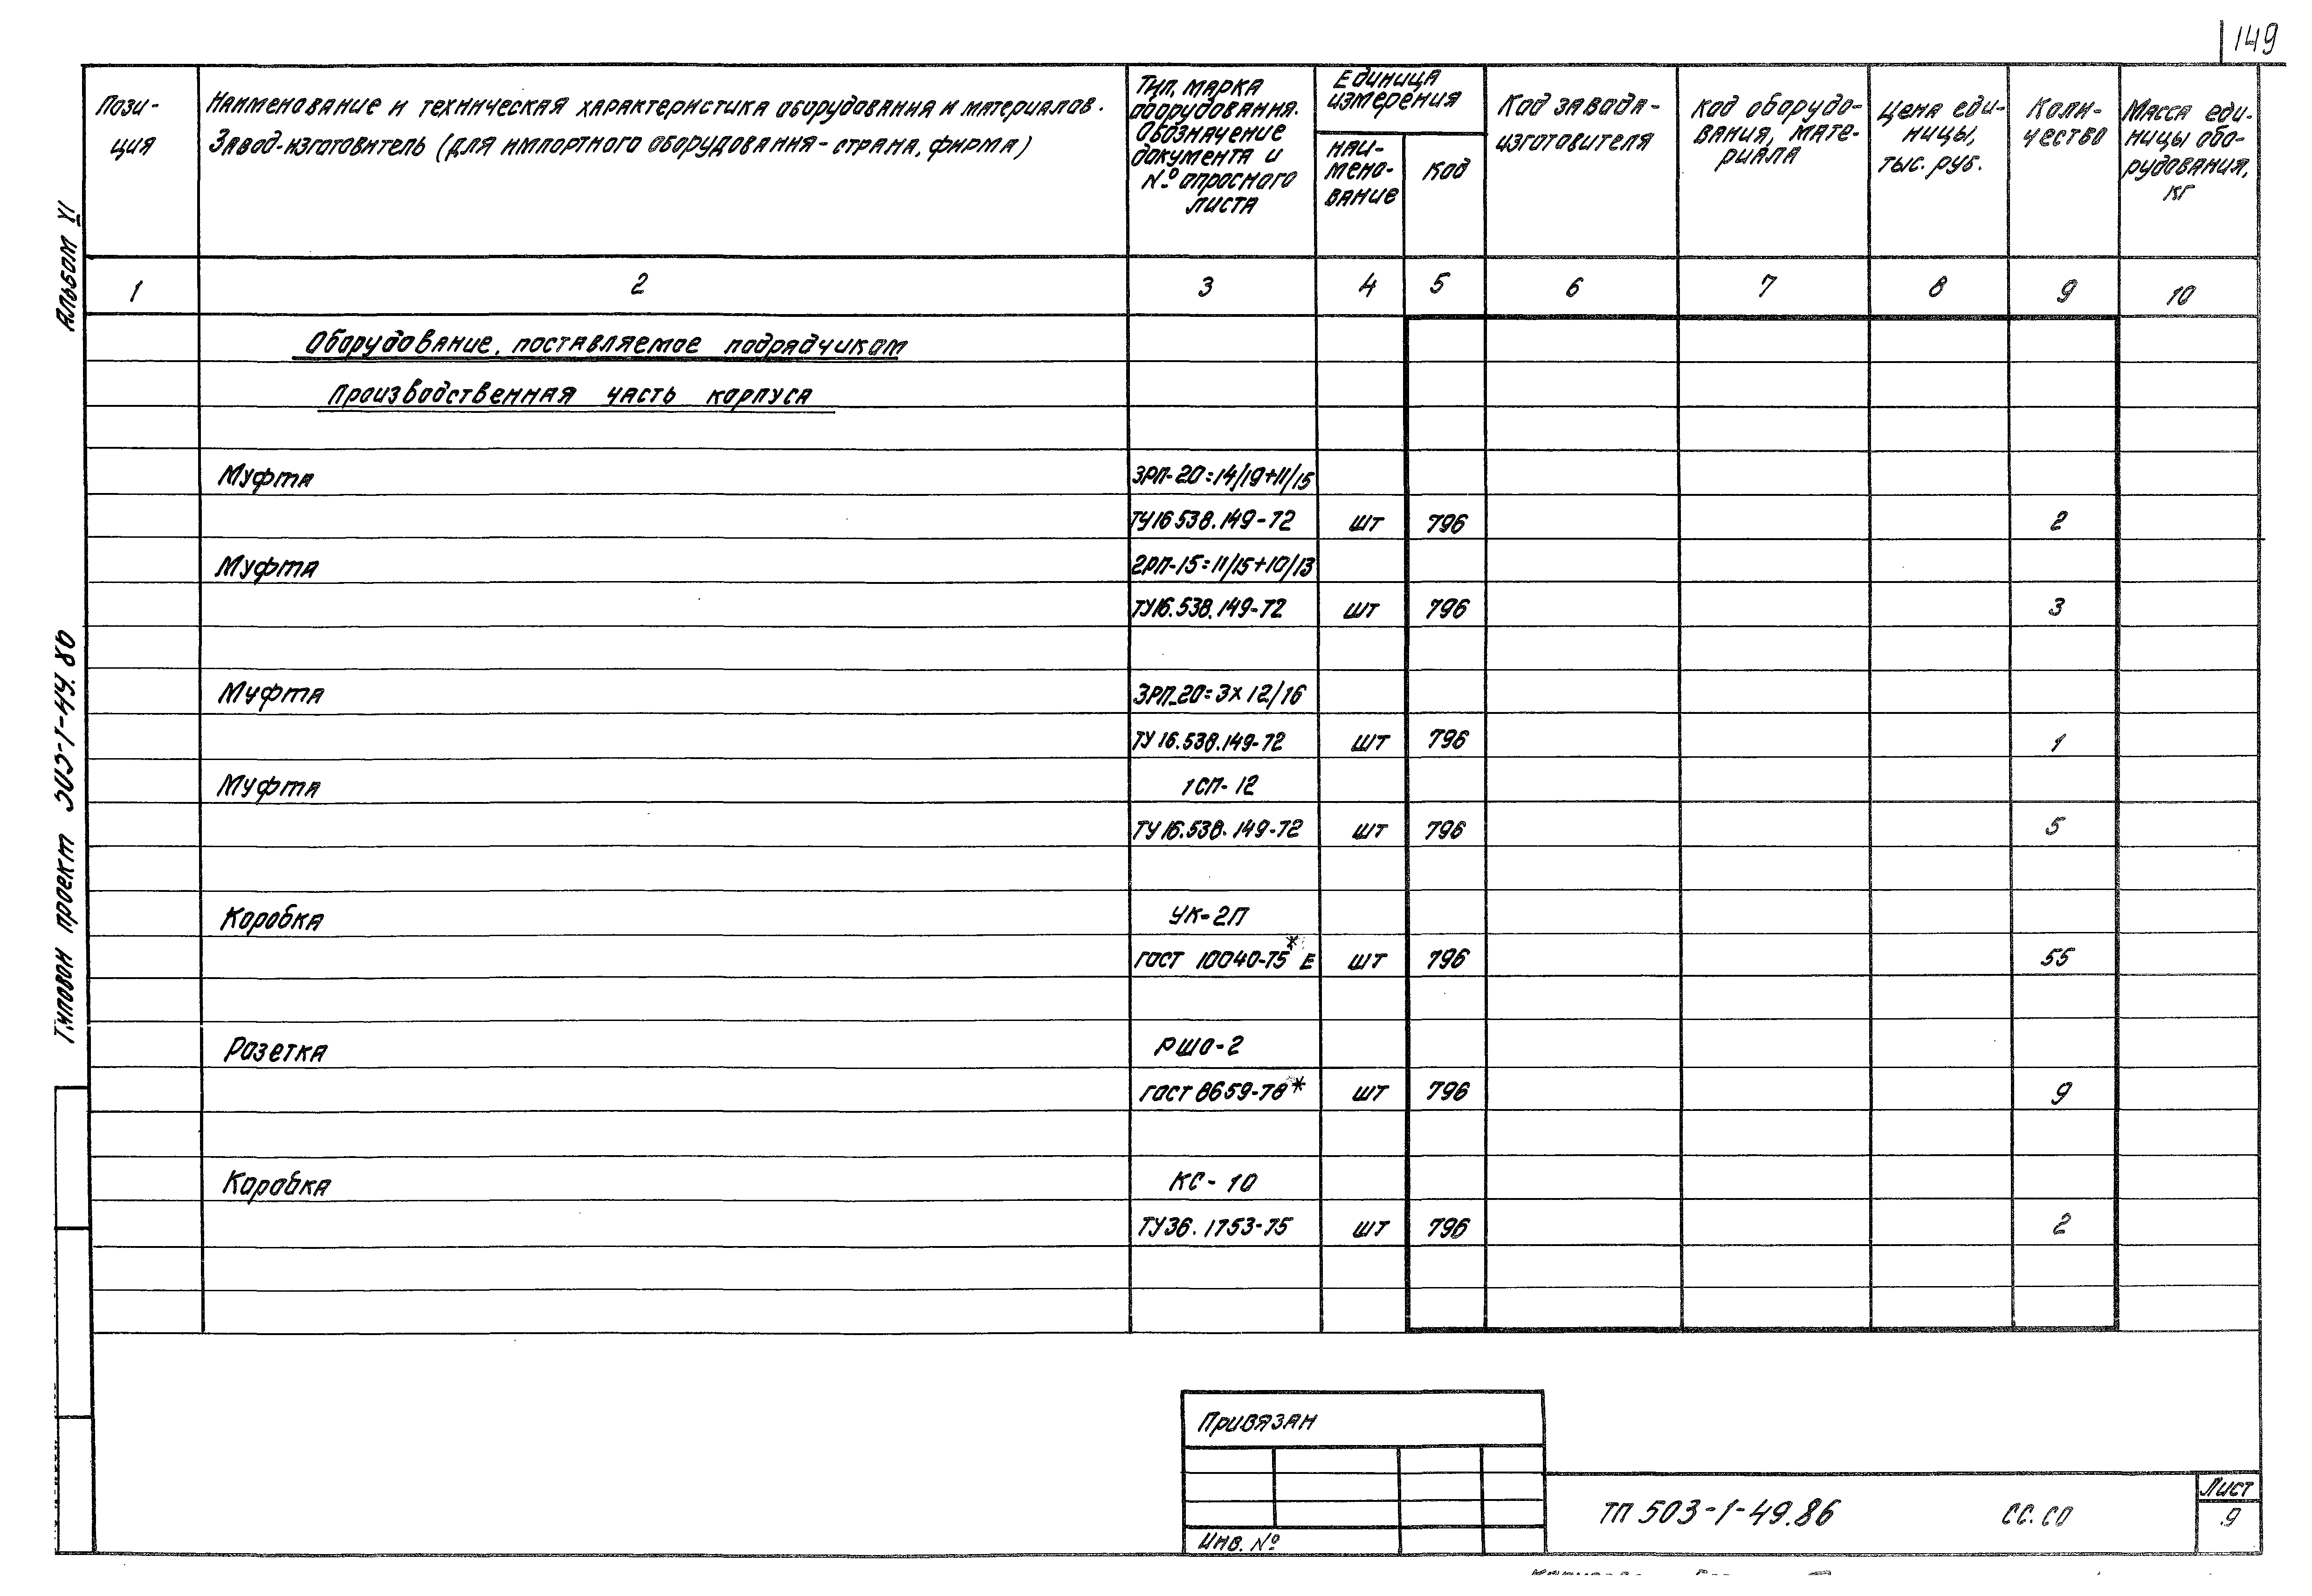 149
Пози-
ция
Наименование и техническая характеристика оборудования и материалов.
Завод-изготовитель (для импортного оборудования-страна, фирма)
Тип, марка
оборудования.
Обозначение
документа и
№ опросного
листа
Единица
измерения
наи-
мено-
вание
код
Код завода-
изготовителя
код оборудо-
вания, мате-
риала
Цена еди-
ницы,
тыс. руб.
Коли-
чество
Масса еди-
ницы обо-
рудования,
кг
1 2 3 4 5 6 7 8 9 10
Оборудование, поставляемое подрядчиком
Производственная часть корпуса
Муфта 3РП-20:14/19+11/15
ТУ16 538.149-72 шт 796 2
Муфта 2РП-15:11/15+10/13
ТУ16.538.149-72 шт 796 3
Муфта 3РП-20:3х12/16
ТУ 16.538.149-72 шт 796 1
Муфта 1СП-12
ТУ16.538.149-72 шт 796 5
Коробка УК-2П
ГОСТ 10040-75* Е шт 796 55
Розетка РШО-2
ГОСТ 8659-78* шт 796 9
Коробка КС-10
ТУ36.1753-75 шт 796 2
Альбом XI
Типовой проект 503-1-49.86
Привязан
Инв. №
ТП 503-1-49.86 СС.СО
Лист
9